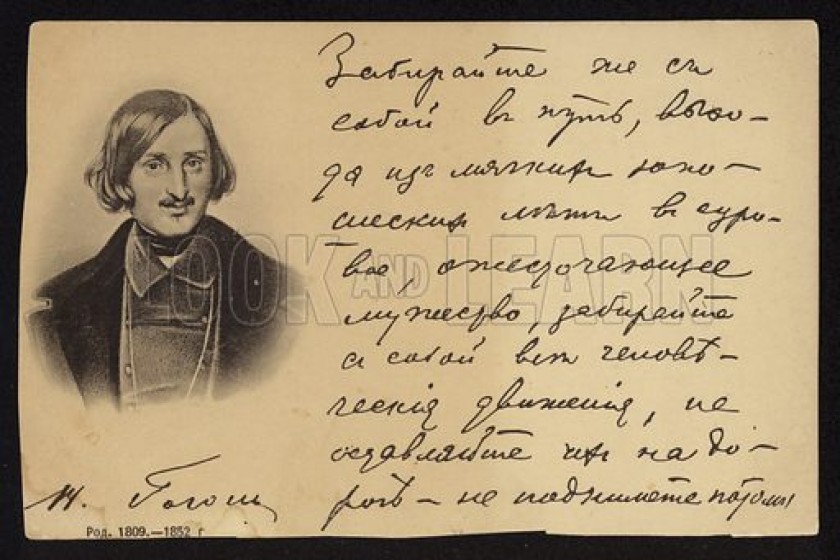 Забирайте же съ
собой въ путь, выхо-
дя изъ мягкихъ юно-
шескихъ лѣтъ въ суро-
вое, ожесточающее
мужество, забирайте
съ собой всѣ человѣ-
ческія движенія, не
оставляйте ихъ на до-
рогѣ – не подымете потомъ
Н. Гоголь
Род. 1809.—1852 г
LOOK AND LEARN